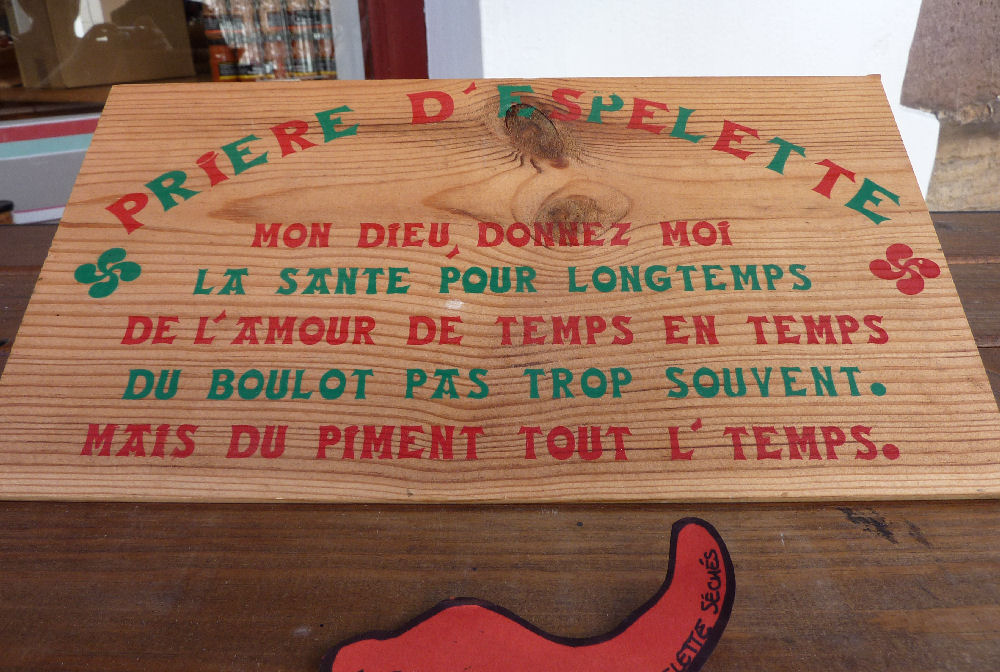 PRIERE D'ESPELETTE
MON DIEU, DONNEZ MOI
LA SANTE POUR LONGTEMPS
DE L'AMOUR DE TEMPS EN TEMPS
DU BOULOT PAS TROP SOUVENT.
MAIS DU PIMENT TOUT L'TEMPS.
SÉCHÉS